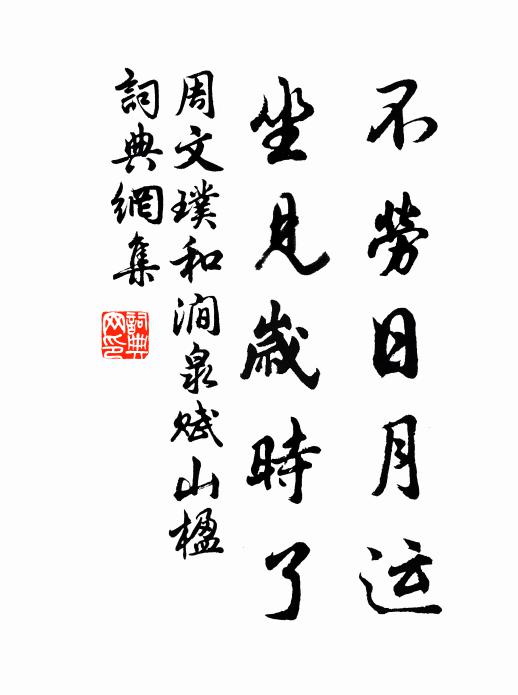 不勞日月运
坐見歲時了
周文璞和澗泉賦山楹
詞典網集
詞典网印